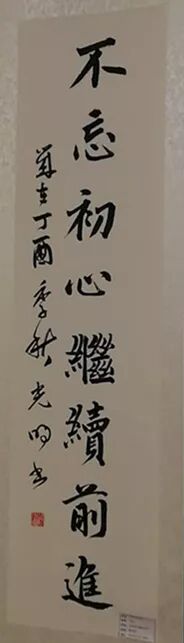 不忘初心繼續前進
歲在丁酉季秋光明書